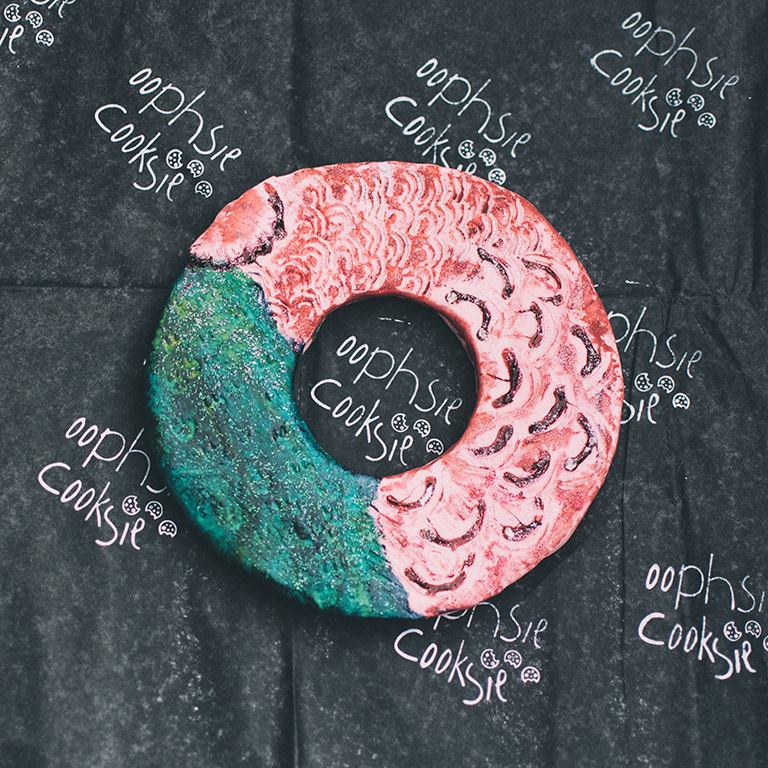 oophsie
Cooksie
oophsie
Cooksie
oophsie
Cooksie
oophsie
Cooksie
oophsie
Cooksie
ooph
Cooksie
oophsie
Cooksie
phsie
Cooksie